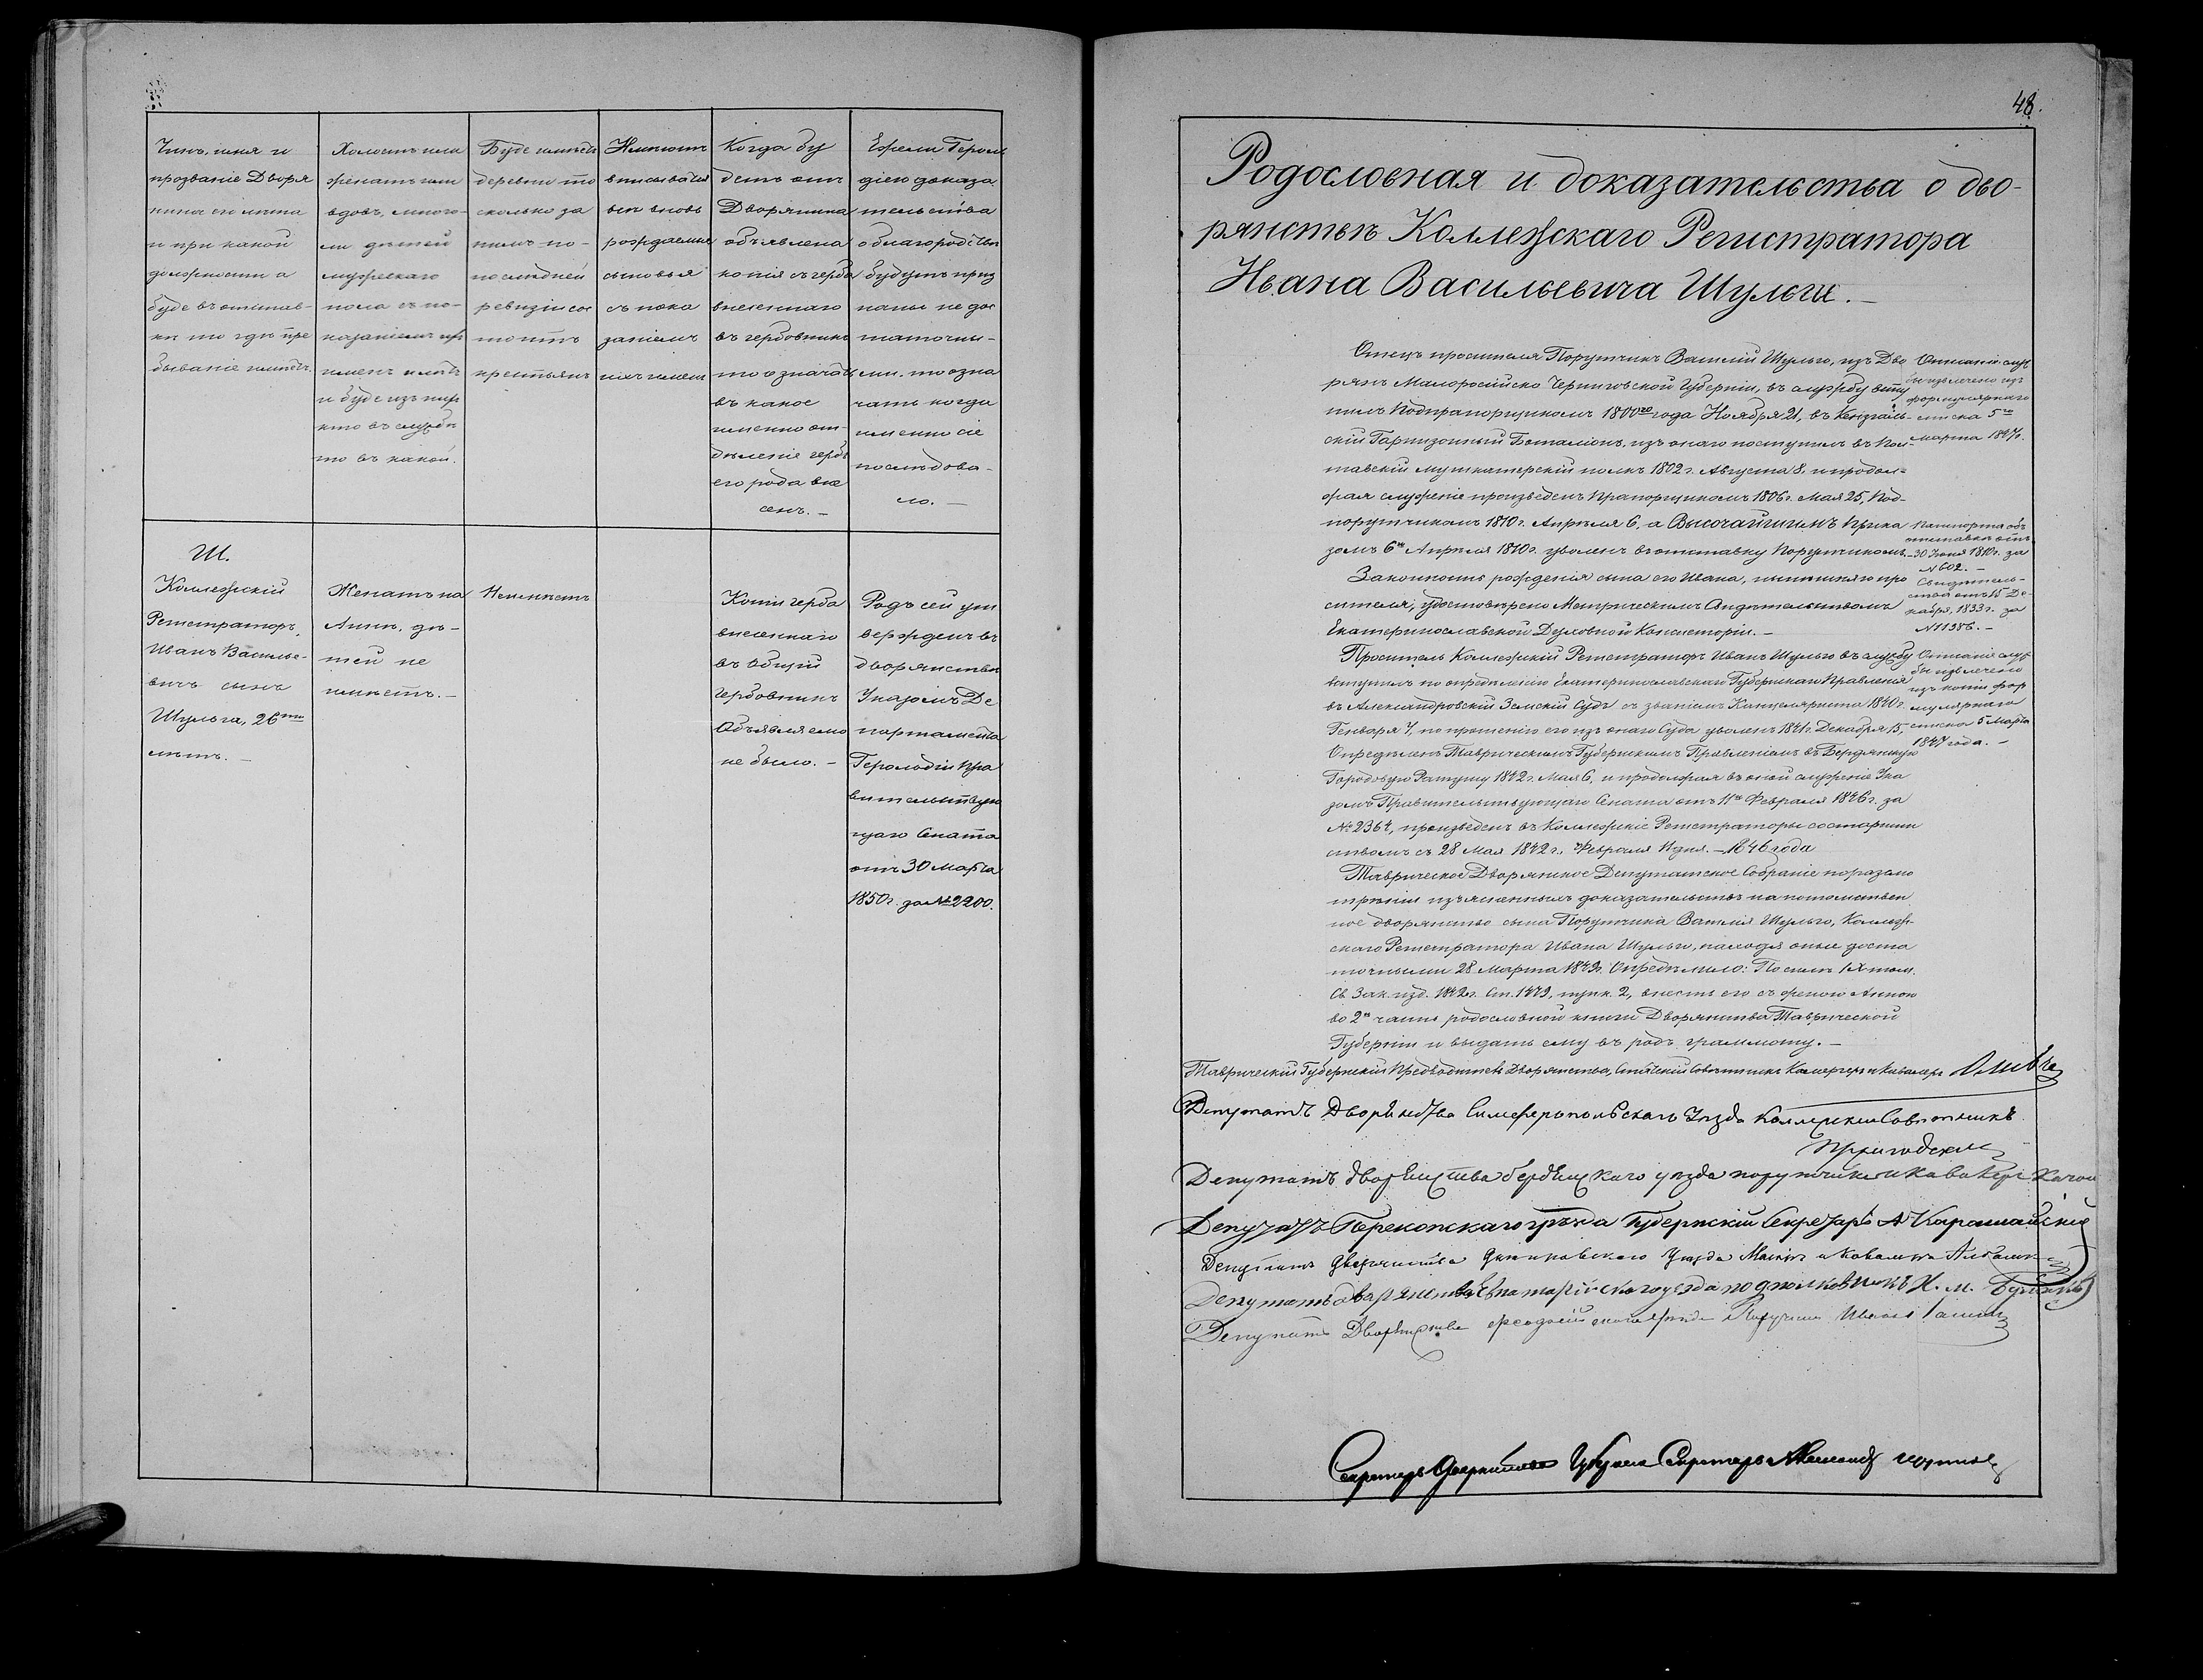 Чинъ, имя и
прозваніе Дворя
нина его лѣта
и при какой
должности а
буде въ отстав-
кѣ то гдѣ пре
бываніе имѣетъ.
Холостъ или
женатъ или
вдовъ, много-
ли дѣтей
мужескаго
пола съ по-
казаніемъ
именъ и лѣтъ
и буде изъ нихъ
кто въ службѣ
то въ какой.
Буде имѣетъ
деревни то
сколько за
нимъ по-
послѣдней
ревизіи сос
тоитъ
крестьянъ
Имѣютъ
вписыватся
всѣ вновь
рождаемые
сыновья
съ пока
заніемъ
ихъ имени
Когда бу
детъ отъ
Дворянина
объявлена
копія съ герба
внесеннаго
въ гербовникъ
то означать
въ какое
именно от-
дѣленіе гербъ
его рода вне
сенъ. —
Ежели Герол
діею доказа
тельства
о благородствѣ
будутъ приз
наны не дос
таточны-
ми, то озна
чать когда
именно сіе
послѣдова-
ло. —
Ш.
Коллежскій
Регистраторъ,
Иванъ Василье-
вичъ сынъ
Шульга, 26ти
лѣтъ. —
Женатъ на
Аннѣ, дѣ-
тей не
имѣетъ. —
Неимѣетъ
Копіи герба
внесеннаго
въ общій
гербовникъ
Объявляемо
не было. —
Родъ сей ут
вержденъ въ
дворянствѣ
Указомъ Де
партамента
Герольдіи Пра
вительствую
щаго Сената
отъ 30 Марта
1850 г. за № 2200.
48.
Родословная и доказательства о дво-
рянствѣ Коллежскаго Регистратора
Ивана Васильевича Шульги. —
Отецъ просителя Порутчикъ Василій Шульго, изъ Дво
рянъ Малоросійско Черниговской Губерніи, въ службу всту
пилъ Подпрапорщикомъ 1800го года Ноября 21, въ
скій Гарнизонный Баталіонъ, изъ онаго поступилъ въ Пол-
тавскій Мушкатерскій полкъ 1802 г. Августа 8. и продол=
жая служеніе произведенъ Прапорщикомъ 1806 г. Мая 25, Под-
порутчикомъ 1810 г. Апрѣля 6, а Высочайшимъ Прика
зомъ 6го Апрѣля 1810 г. уволенъ въ отставку Порутчикомъ. —
Законность рожденія сына его Ивана, нынѣшняго про
сителя, удостовѣрено Метрическимъ Свидѣтельствомъ
Екатеринославской Духовной Консисторіи. —
Проситель Коллежскій Регистраторъ Иванъ Шульго въ службу
вступилъ по опредѣленію Екатеринославскаго Губернскаго Правленія
въ Александровскій Земскій Судъ съ званіемъ Канцеляриста 1840 г.
Генваря 7, по прошенію его изъ онаго Суда уволенъ 1841 г. Декабря 15,
Опредѣленъ Таврическимъ Губернскимъ Правленіемъ въ Бердянскую
Городовую Ратушу 1842 г. Мая 6, и продолжая въ оной служеніе Ука
зомъ Правительствующаго Сената отъ 11го Февраля 1846 г. за
№ 2364, произведенъ въ Коллежскіе Регистраторы со старшин
ствомъ съ 28 Мая 1842 г., Февраля 11 дня. — 1846 года
Таврическое Дворянское Депутатское Собраніе по разсмо
трѣніи изъясненныхъ доказательствъ на потомствен
ное дворянство сына Порутчика Василія Шульго, Коллеж-
скаго Регистратора Ивана Шульги, находя оныя доста
точными 28 Марта 1849 г. Опредѣлило: По силѣ IX том.
Св. Зак. изд. 1842 г. Ст. 1479, пунк. 2, внесть его съ женою Анною
во 2ю часть родословной книги Дворянства Таврической
Губерніи и выдать ему въ родъ грамммоту. —
Описаніе служ
бы извлечено изъ
формулярнаго
списка 5го
Марта 1847 г.
Паспорта объ
отставкѣ отъ
30 Іюня 1810 г. за
№ 602. —
Свидѣтель-
ство отъ 15 Де-
кабря, 1833 г. за
№ 11386. —
Описаніе служ
бы извлечено
изъ копіи фор
мулярнаго
списка 5 Марта
1847 года. —
Таврическій Губернскій Предводитель Дворянства, Статскій Совѣтникъ Камергеръ и Кавалеръ
Депутатъ Дворянства Симферопольскаго Уѣзда Коллежскій Совѣтникъ
Депутатъ дворянства бердянскаго уѣзда порутчикъ и Кавалеръ
Депутатъ Перекопскаго уѣзда Губернскій Секретарь А Карашайскій
Депутатъ Дворянства Днѣпровскаго Уѣзда Маіоръ и Кавалеръ
Депутатъ дворянства Евпаторійскаго уезда подполковникъ
Депутатъ Дворянства Феодосійскаго уѣзда Порутчикъ Иванъ
Секретарь Дворянства Губернскій Секретарь